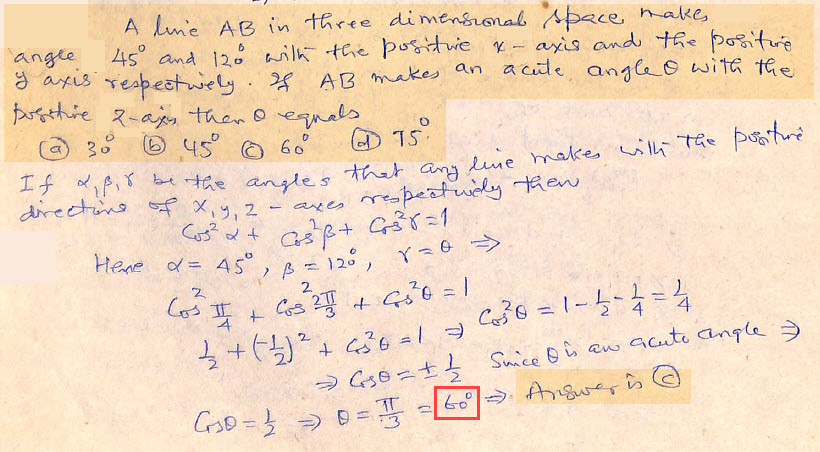 A line AB in three dimensional space makes
angle 45° and 120° with the positive x-axis and the positive
y axis respectively. If AB makes an acute angle θ with the
positive z-axis then θ equals
(a) 30° (b) 45° (c) 60° (d) 75°.
If α, β, γ be the angles that any line makes with the positive
directions of x, y, z - axes respectively then
Cos²α + Cos²β + Cos²γ = 1
Here α = 45°, β = 120°, γ = θ ⇒
Cos² π/4 + Cos² 2π/3 + Cos²θ = 1
1/2 + (-1/2)² + Cos²θ = 1 ⇒ Cos²θ = 1 - 1/2 - 1/4 = 1/4
⇒ Cosθ = ± 1/2 Since θ is an acute angle ⇒
Cosθ = 1/2 ⇒ θ = π/3 = 60° ⇒ Answer is (c)